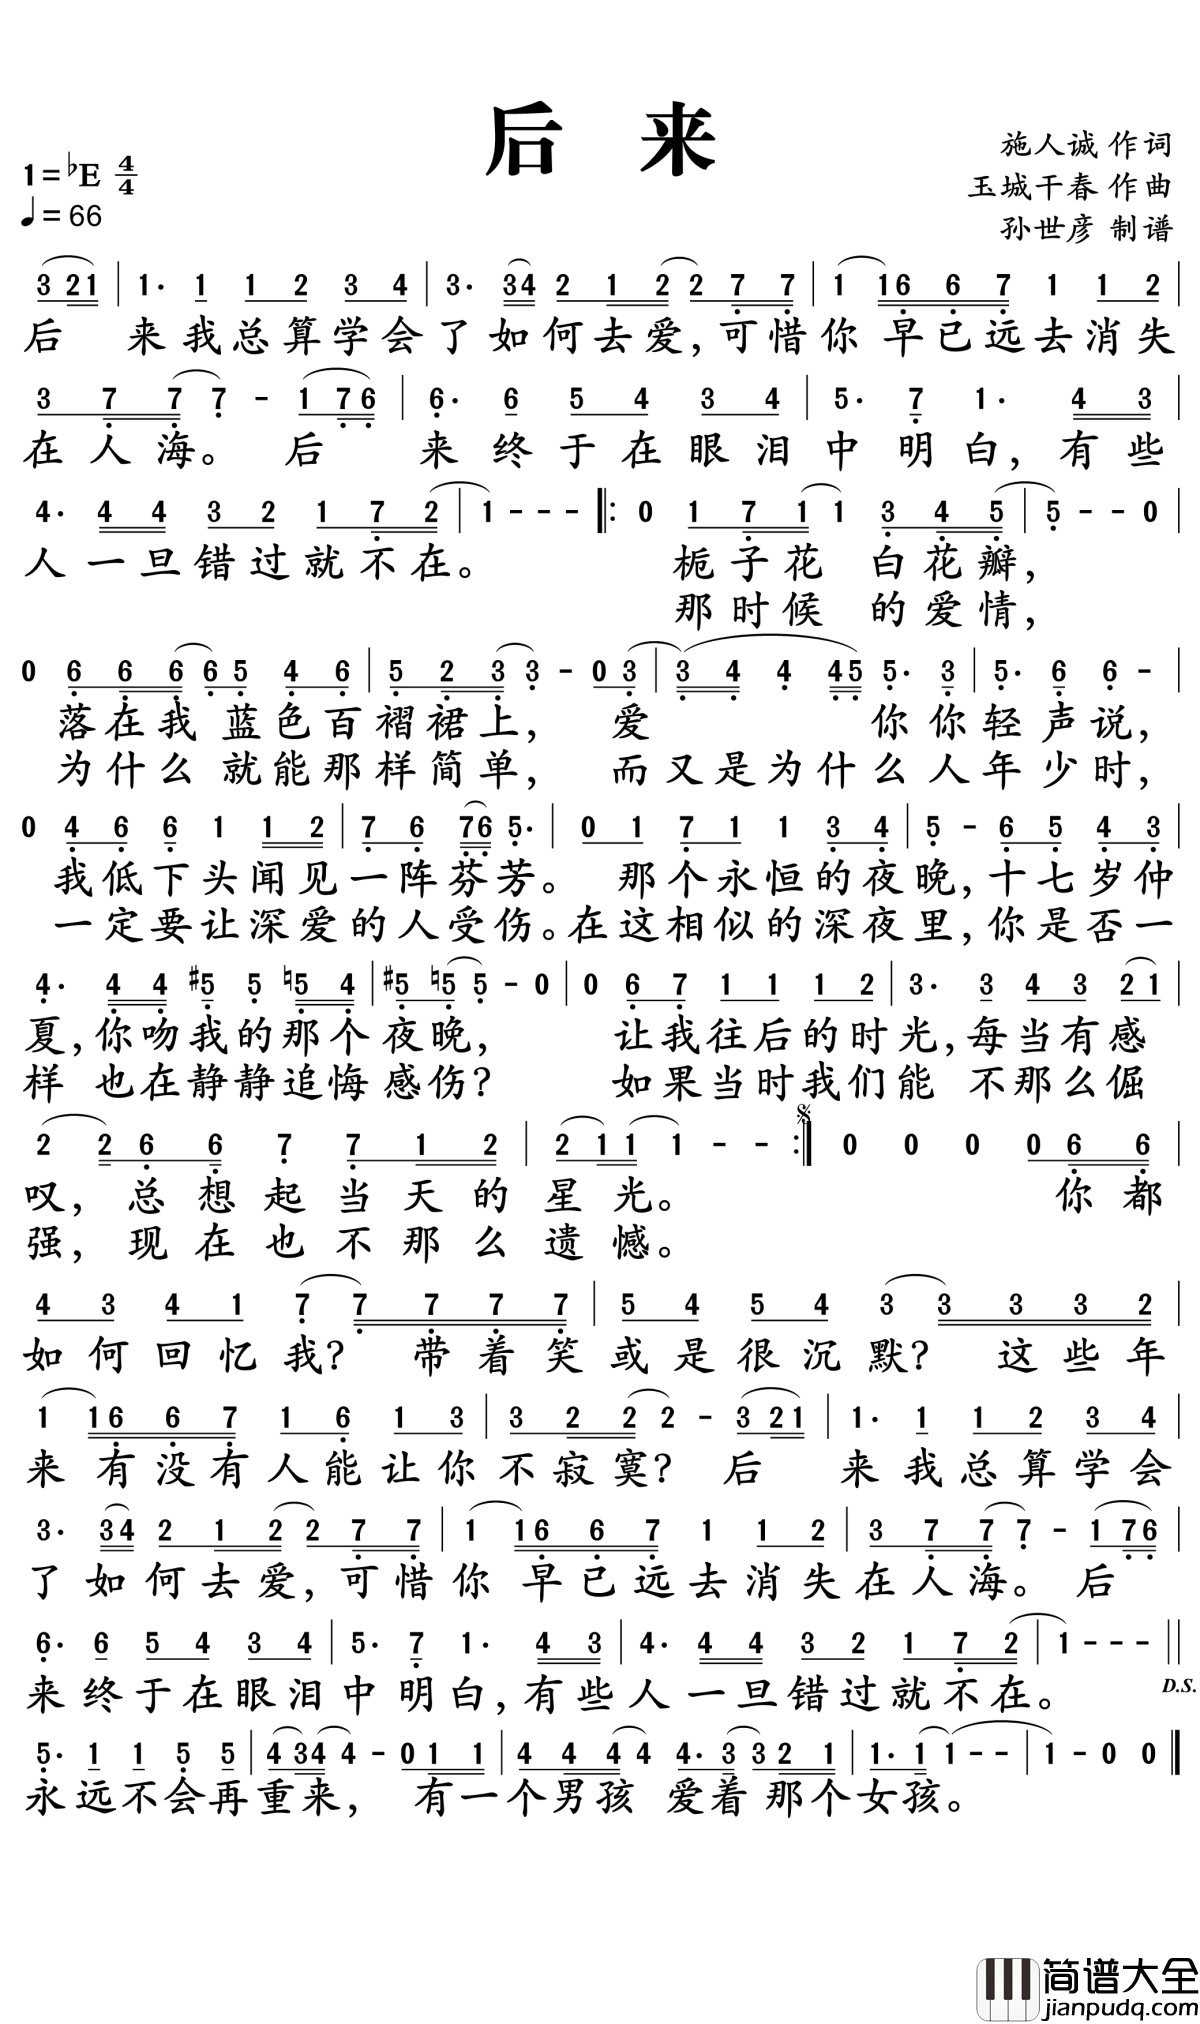 后 来
施人诚 作词
1=♭E 4/4
玉城干春 作曲
♩=66
孙世彦 制谱
3 21 | 1· 1 1 2 3 4 | 3· 34 2 1 2 2 7 7 | 1 16 6 7 1 1 2 |
后 来我总算学会了如何去爱,可惜你 早已远去消失
3 7 7 7 - 1 76 | 6· 6 5 4 3 4 | 5· 7 1· 4 3 |
在人海。 后 来终于在眼泪中明白,有些
4· 4 4 3 2 1 7 2 | 1 - - - |: 0 1 7 1 1 3 4 5 | 5 - - 0 |
人一旦错过就不在。 栀子花 白花瓣,
那时候 的爱情,
0 6 6 6 6 5 4 6 | 5 2 3 3 - 0 3 | 3 4 4 45 5· 3 | 5· 6 6 - |
落在我 蓝色百褶裙上, 爱 你你轻声说,
为什么 就能那样简单, 而又是为什么人年少时,
0 4 6 6 1 1 2 | 7 6 76 5· | 0 1 7 1 1 3 4 | 5 - 6 5 4 3 |
我低下头闻见一阵芬芳。 那个永恒的夜晚,十七岁仲
一定要让深爱的人受伤。在这相似的深夜里,你是否一
4· 4 4 #5 5 ♮5 4 | #5 ♮5 5 - 0 | 0 6 7 1 1 1 2 | 3· 3 4 3 2 1 |
夏,你吻我的那个夜晚, 让我往后的时光,每当有感
样 也在静静追悔感伤? 如果当时我们能 不那么倔
2 2 6 6 7 7 1 2 | 2 1 1 1 - - :| 0 0 0 0 6 6 |
叹, 总想起当天的星光。 你都
强, 现在也不那么遗憾。
4 3 4 1 7 7 7 7 7 | 5 4 5 4 3 3 3 3 2 |
如何回忆我? 带着笑或是很沉默? 这些年
1 16 6 7 1 6 1 3 | 3 2 2 2 - 3 21 | 1· 1 1 2 3 4 |
来 有没有人能让你不寂寞? 后 来我总算学会
3· 34 2 1 2 2 7 7 | 1 16 6 7 1 1 2 | 3 7 7 7 - 1 76 |
了如何去爱,可惜你 早已远去消失在人海。后
6· 6 5 4 3 4 | 5· 7 1· 4 3 | 4· 4 4 3 2 1 7 2 | 1 - - - ||
来终于在眼泪中明白,有些人一旦错过就不在。 D.S.
5· 1 1 5 5 | 4 34 4 - 0 1 1 | 4 4 4 4 4· 3 3 2 1 | 1· 1 1 - - | 1 - 0 0 ‖
永远不会再重来, 有一个男孩 爱着那个女孩。
简谱大全
jianpudq.com